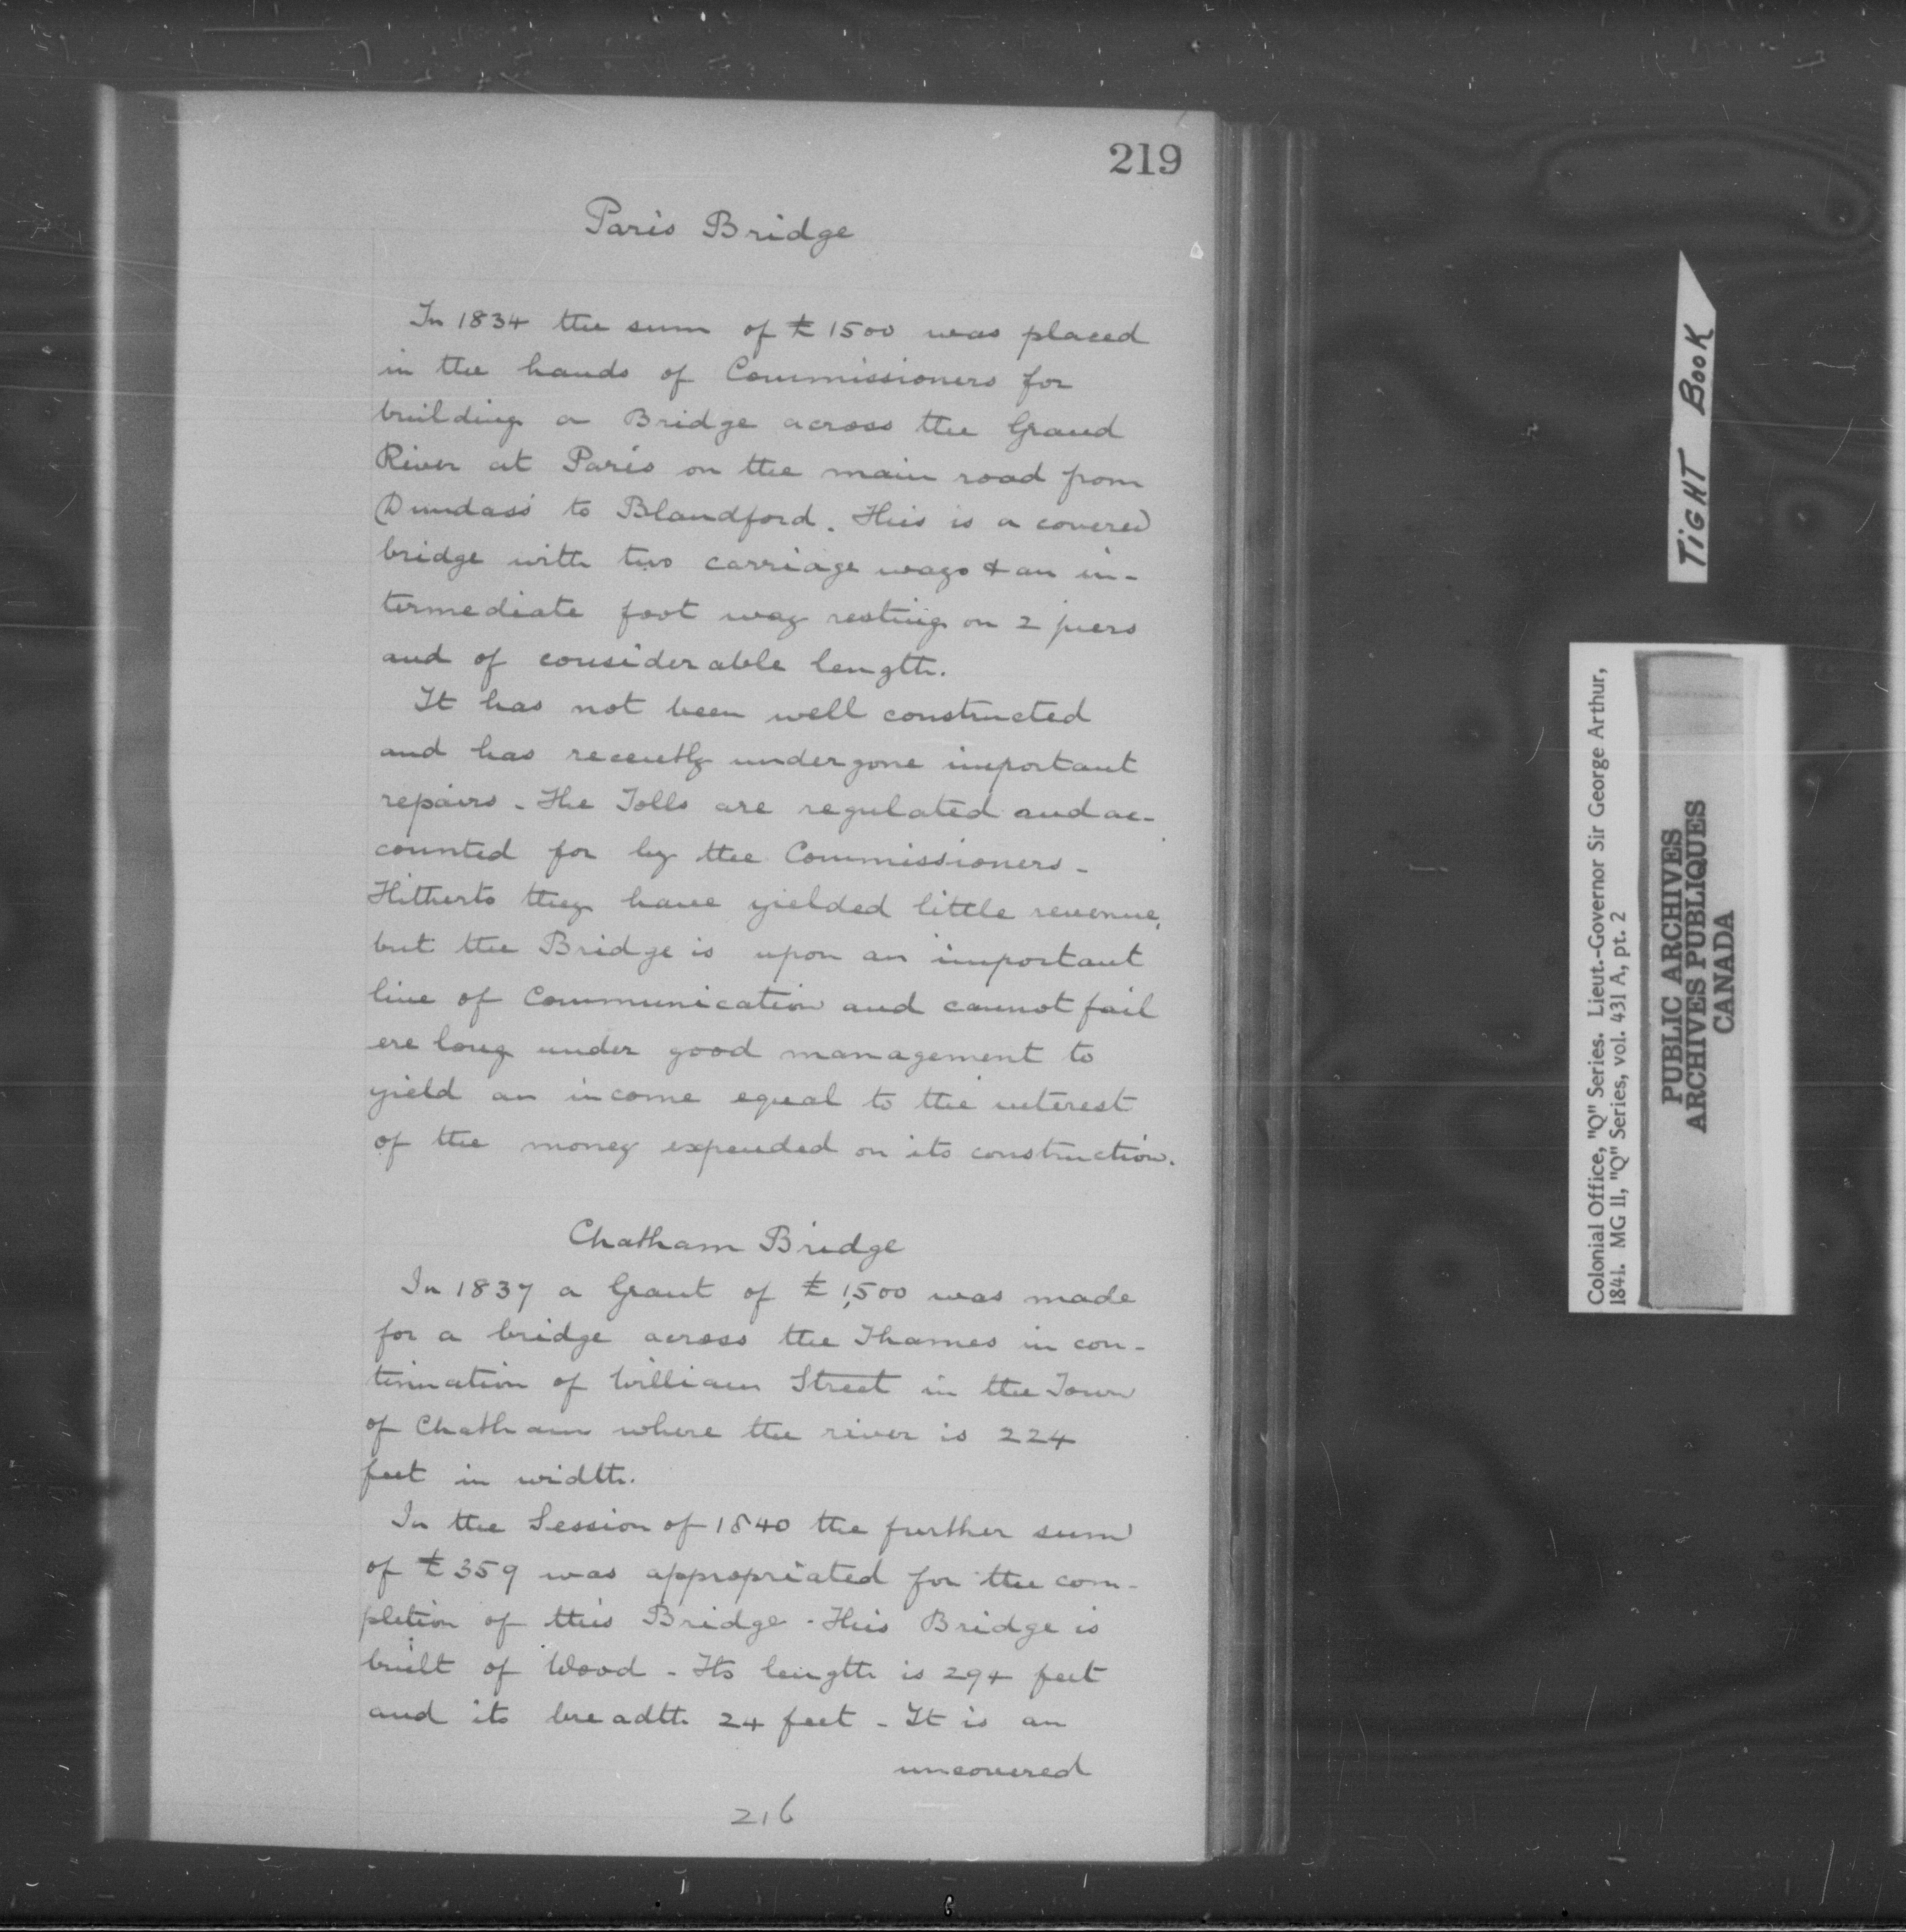 219
Paris Bridge
In 1834 the sum of £1500 was placed
in the hands of Commissioners for
building a Bridge across the Grand
River at Paris on the main road from
Dundass to Blandford. This is a covered
bridge with two carriage ways & an in-
termediate foot way resting on 2 piers
and of considerable length.
It has not been well constructed
and has recently undergone important
repairs - The Tolls are regulated and ac-
counted for by the Commissioners -
Hitherto they have yielded little revenue,
but the Bridge is upon an important
line of Communication and cannot fail
ere long under good management to
yield an income equal to the interest
of the money expended on its construction.
Chatham Bridge
In 1837 a Grant of £1,500 was made
for a bridge across the Thames in con-
tinuation of William Street in the Town
of Chatham where the river is 224
feet in width.
In the Session of 1840 the further sum
of £359 was appropriated for the com-
pletion of this Bridge - This Bridge is
built of Wood - Its length is 294 feet
and its breadth 24 feet - It is an
uncovered
216
TIGHT BOOK
Colonial Office, "Q" Series. Lieut.-Governor Sir George Arthur,
1841. MG 11, "Q" Series, vol. 431 A, pt. 2
PUBLIC ARCHIVES
ARCHIVES PUBLIQUES
CANADA